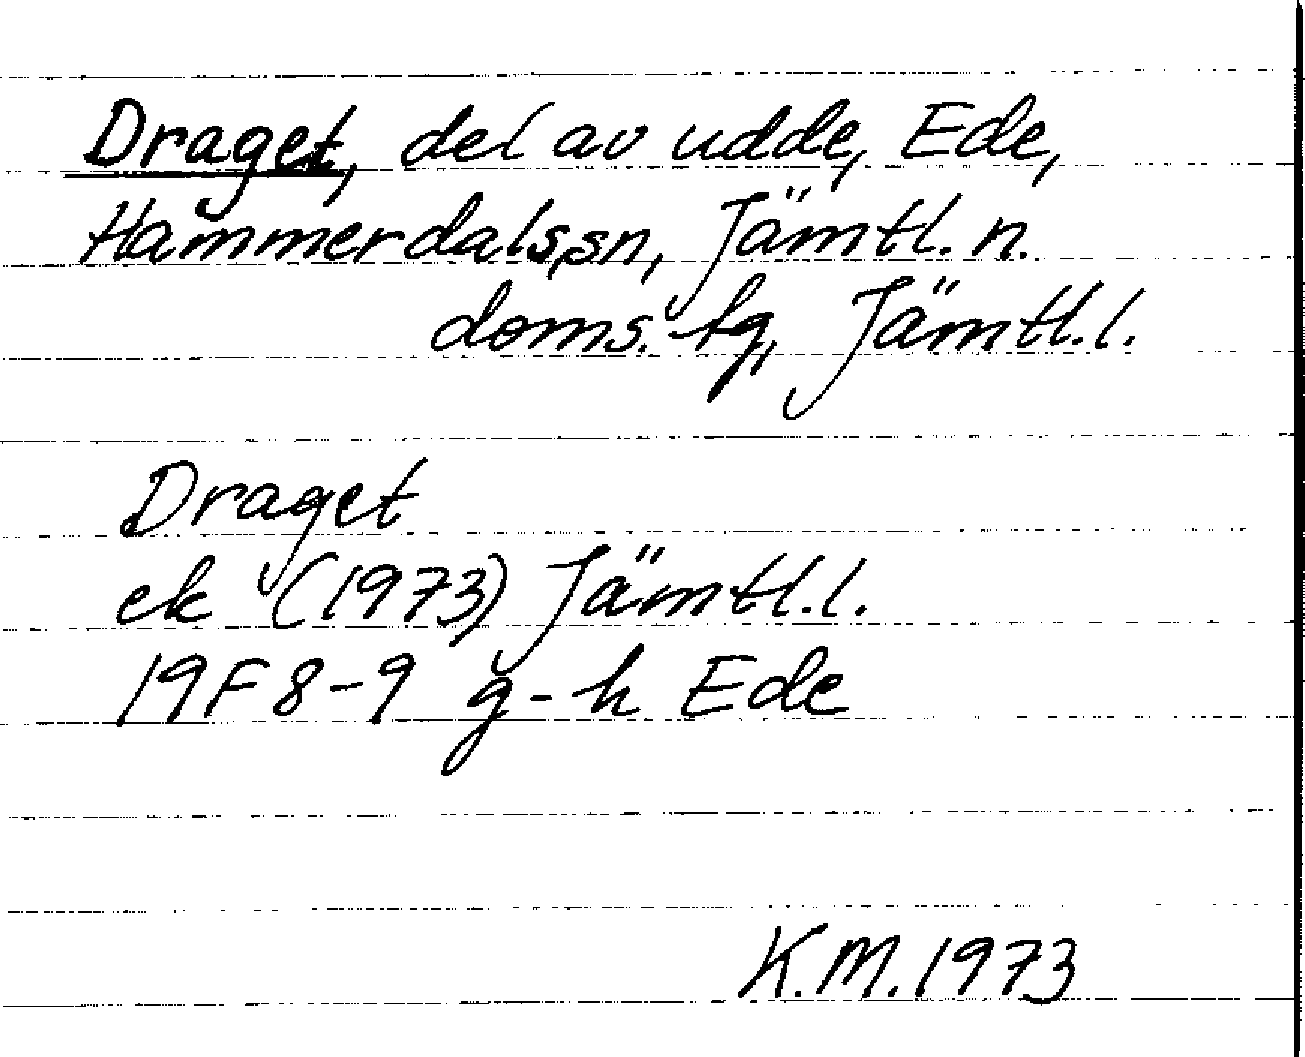 Draget, del av udde, Ede,
Hammerdals sn, Jämtl. n.
doms. tg, Jämtl. l.
Draget
ek (1973) Jämtl. l.
19F 8-9 g-h Ede
K.M. 1973